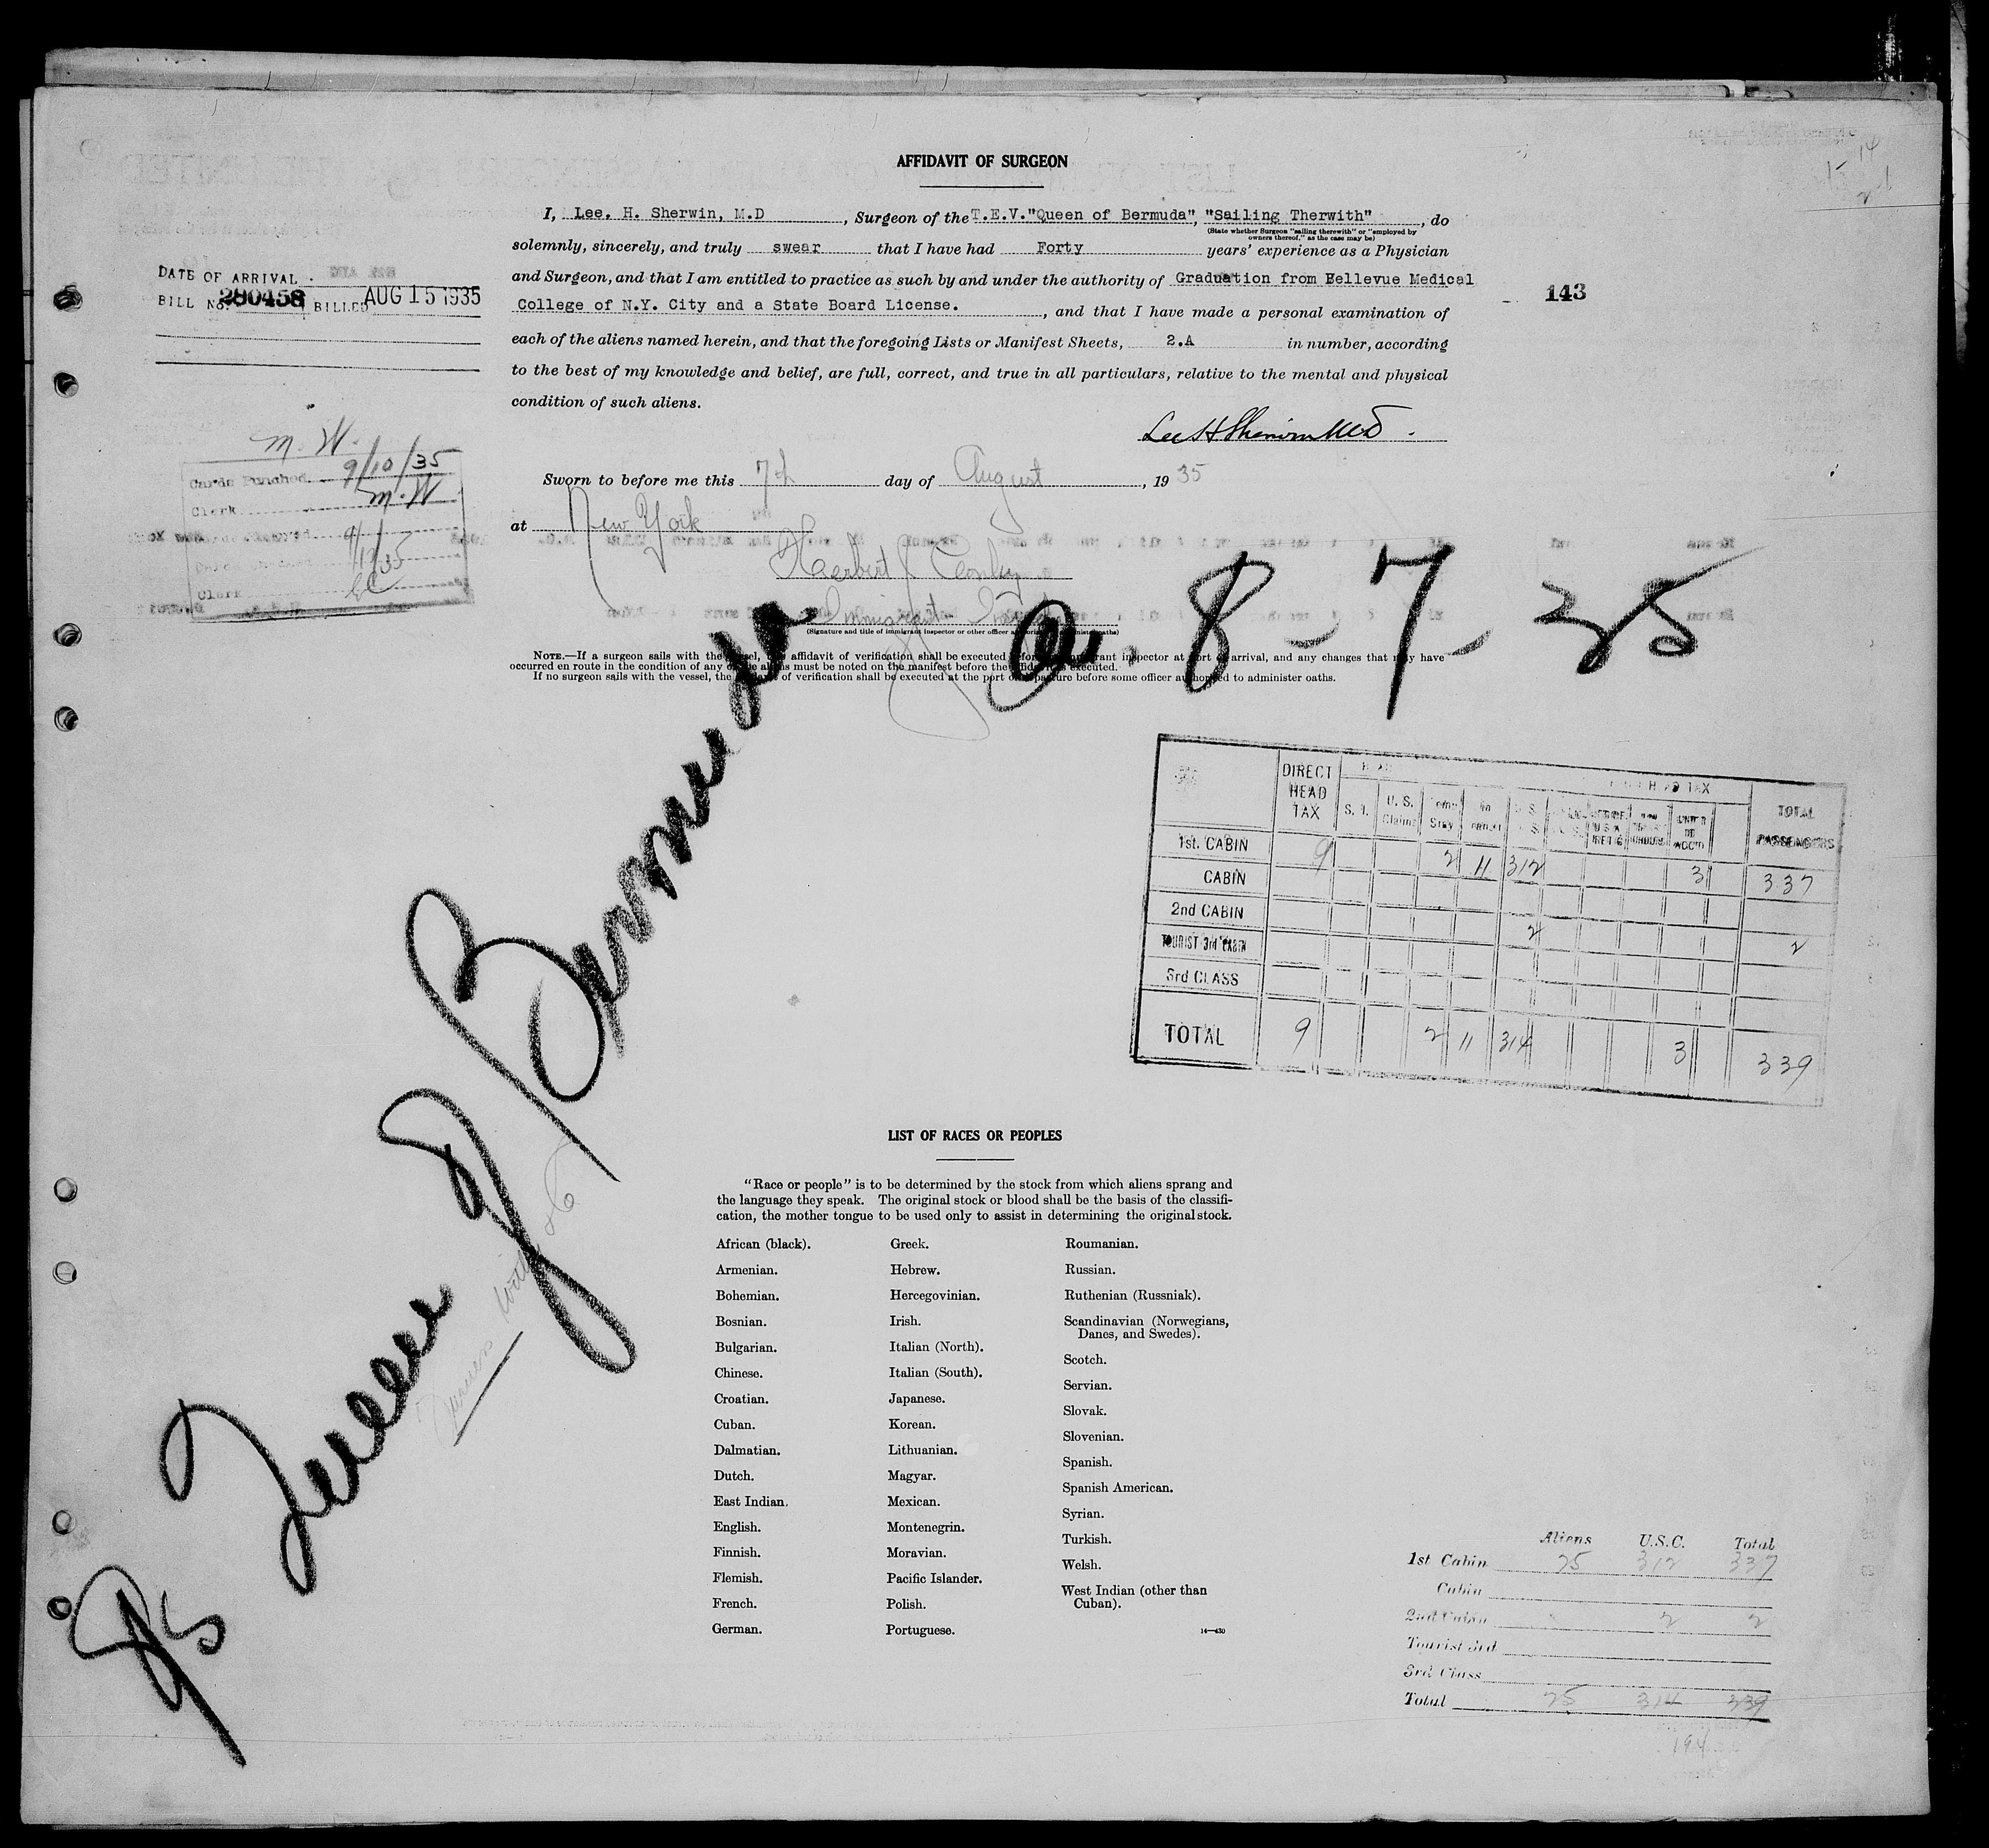 AFFIDAVIT OF SURGEON
I, Lee. H. Sherwin, M.D, Surgeon of the T.E.V. "Queen of Bermuda", "Sailing Therwith", do
(State whether Surgeon "sailing therewith" or "employed by
owners thereof," as the case may be)
solemnly, sincerely, and truly swear that I have had Forty years' experience as a Physician
and Surgeon, and that I am entitled to practice as such by and under the authority of Graduation from Bellevue Medical
College of N.Y. City and a State Board License., and that I have made a personal examination of
each of the aliens named herein, and that the foregoing Lists or Manifest Sheets, 2.A in number, according
to the best of my knowledge and belief, are full, correct, and true in all particulars, relative to the mental and physical
condition of such aliens.
Lee H Sherwin MD.
DATE OF ARRIVAL
BILL No. 290458 BILLED AUG 15 1935
143
M. W.
Cards Punched 9/10/35
Clerk M. W.
Clerk
Sworn to before me this 7th day of August, 1935
at New York
Herbert
Immigrant
(Signature and title of immigrant inspector or other officer authorized to administer oaths)
a. 8-7-35
NOTE.—If a surgeon sails with the vessel, the affidavit of verification shall be executed before immigrant inspector at port of arrival, and any changes that may have
occurred en route in the condition of any of the aliens must be noted on the manifest before the affidavit is executed.
If no surgeon sails with the vessel, the affidavit of verification shall be executed at the port of departure before some officer authorized to administer oaths.
SS Queen of Bermuda
DIRECT HEAD TAX S. T. U. S. Claims Stay HEAD TAX TOTAL PASSENGERS
1st. CABIN 9 2 11 312 3 337
CABIN
2nd CABIN 2 2
TOURIST 3rd CABIN
3rd CLASS
TOTAL 9 2 11 314 3 339
LIST OF RACES OR PEOPLES
"Race or people" is to be determined by the stock from which aliens sprang and
the language they speak. The original stock or blood shall be the basis of the classifi-
cation, the mother tongue to be used only to assist in determining the original stock.
African (black).
Armenian.
Bohemian.
Bosnian.
Bulgarian.
Chinese.
Croatian.
Cuban.
Dalmatian.
Dutch.
East Indian.
English.
Finnish.
Flemish.
French.
German.
Greek.
Hebrew.
Hercegovinian.
Irish.
Italian (North).
Italian (South).
Japanese.
Korean.
Lithuanian.
Magyar.
Mexican.
Montenegrin.
Moravian.
Pacific Islander.
Polish.
Portuguese.
Roumanian.
Russian.
Ruthenian (Russniak).
Scandinavian (Norwegians,
Danes, and Swedes).
Scotch.
Servian.
Slovak.
Slovenian.
Spanish.
Spanish American.
Syrian.
Turkish.
Welsh.
West Indian (other than
Cuban).
14—430
Aliens U.S.C. Total
1st Cabin 25 312 337
Cabin
2nd Cabin 2 2
Tourist 3rd
3rd Class
Total 25 314 339
194